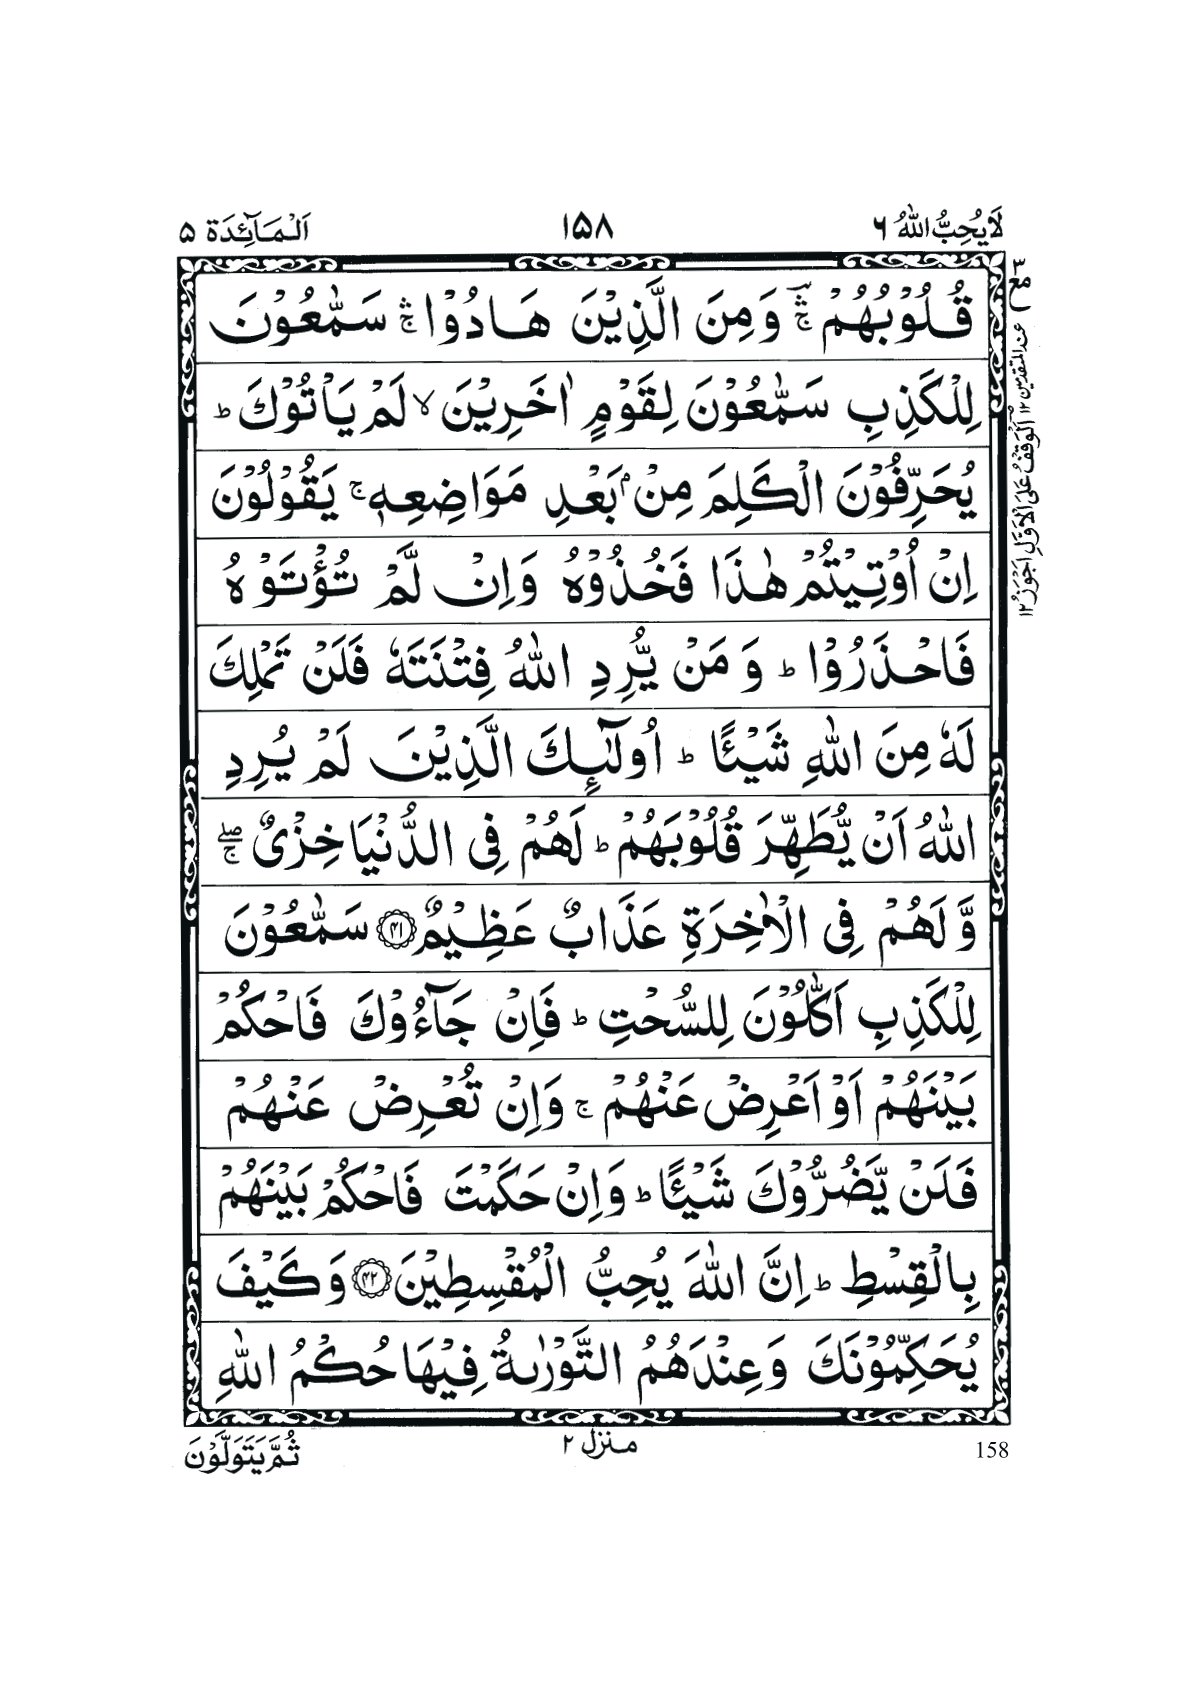 لَا يُحِبُّ اللّٰهُ ٦
١٥٨
اَلْمَآئِدَة ٥
قُلُوْبُهُمْ ۛۚ وَمِنَ الَّذِيْنَ هَادُوْا ۛۚ سَمّٰعُوْنَ
لِلْكَذِبِ سَمّٰعُوْنَ لِقَوْمٍ اٰخَرِيْنَ ۙ لَمْ يَاْتُوْكَ ؕ
يُحَرِّفُوْنَ الْكَلِمَ مِنْۢ بَعْدِ مَوَاضِعِهٖ ۚ يَقُوْلُوْنَ
اِنْ اُوْتِيْتُمْ هٰذَا فَخُذُوْهُ وَاِنْ لَّمْ تُؤْتَوْهُ
فَاحْذَرُوْا ؕ وَمَنْ يُّرِدِ اللّٰهُ فِتْنَتَهٗ فَلَنْ تَمْلِكَ
لَهٗ مِنَ اللّٰهِ شَيْـًٔا ؕ اُولٰٓئِكَ الَّذِيْنَ لَمْ يُرِدِ
اللّٰهُ اَنْ يُّطَهِّرَ قُلُوْبَهُمْ ؕ لَهُمْ فِى الدُّنْيَا خِزْىٌ ۖۚ
وَّلَهُمْ فِى الْاٰخِرَةِ عَذَابٌ عَظِيْمٌ ﴿۴۱﴾ سَمّٰعُوْنَ
لِلْكَذِبِ اَكّٰلُوْنَ لِلسُّحْتِ ؕ فَاِنْ جَآءُوْكَ فَاحْكُمْ
بَيْنَهُمْ اَوْ اَعْرِضْ عَنْهُمْ ۚ وَاِنْ تُعْرِضْ عَنْهُمْ
فَلَنْ يَّضُرُّوْكَ شَيْـًٔا ؕ وَاِنْ حَكَمْتَ فَاحْكُمْ بَيْنَهُمْ
بِالْقِسْطِ ؕ اِنَّ اللّٰهَ يُحِبُّ الْمُقْسِطِيْنَ ﴿۴۲﴾ وَكَيْفَ
يُحَكِّمُوْنَكَ وَعِنْدَهُمُ التَّوْرٰىةُ فِيْهَا حُكْمُ اللّٰهِ
٣
مع
عند المتقدمين ١٢
الوقف على الاول اجوز ١٢
158
منزل ٢
ثُمَّ يَتَوَلَّوْنَ